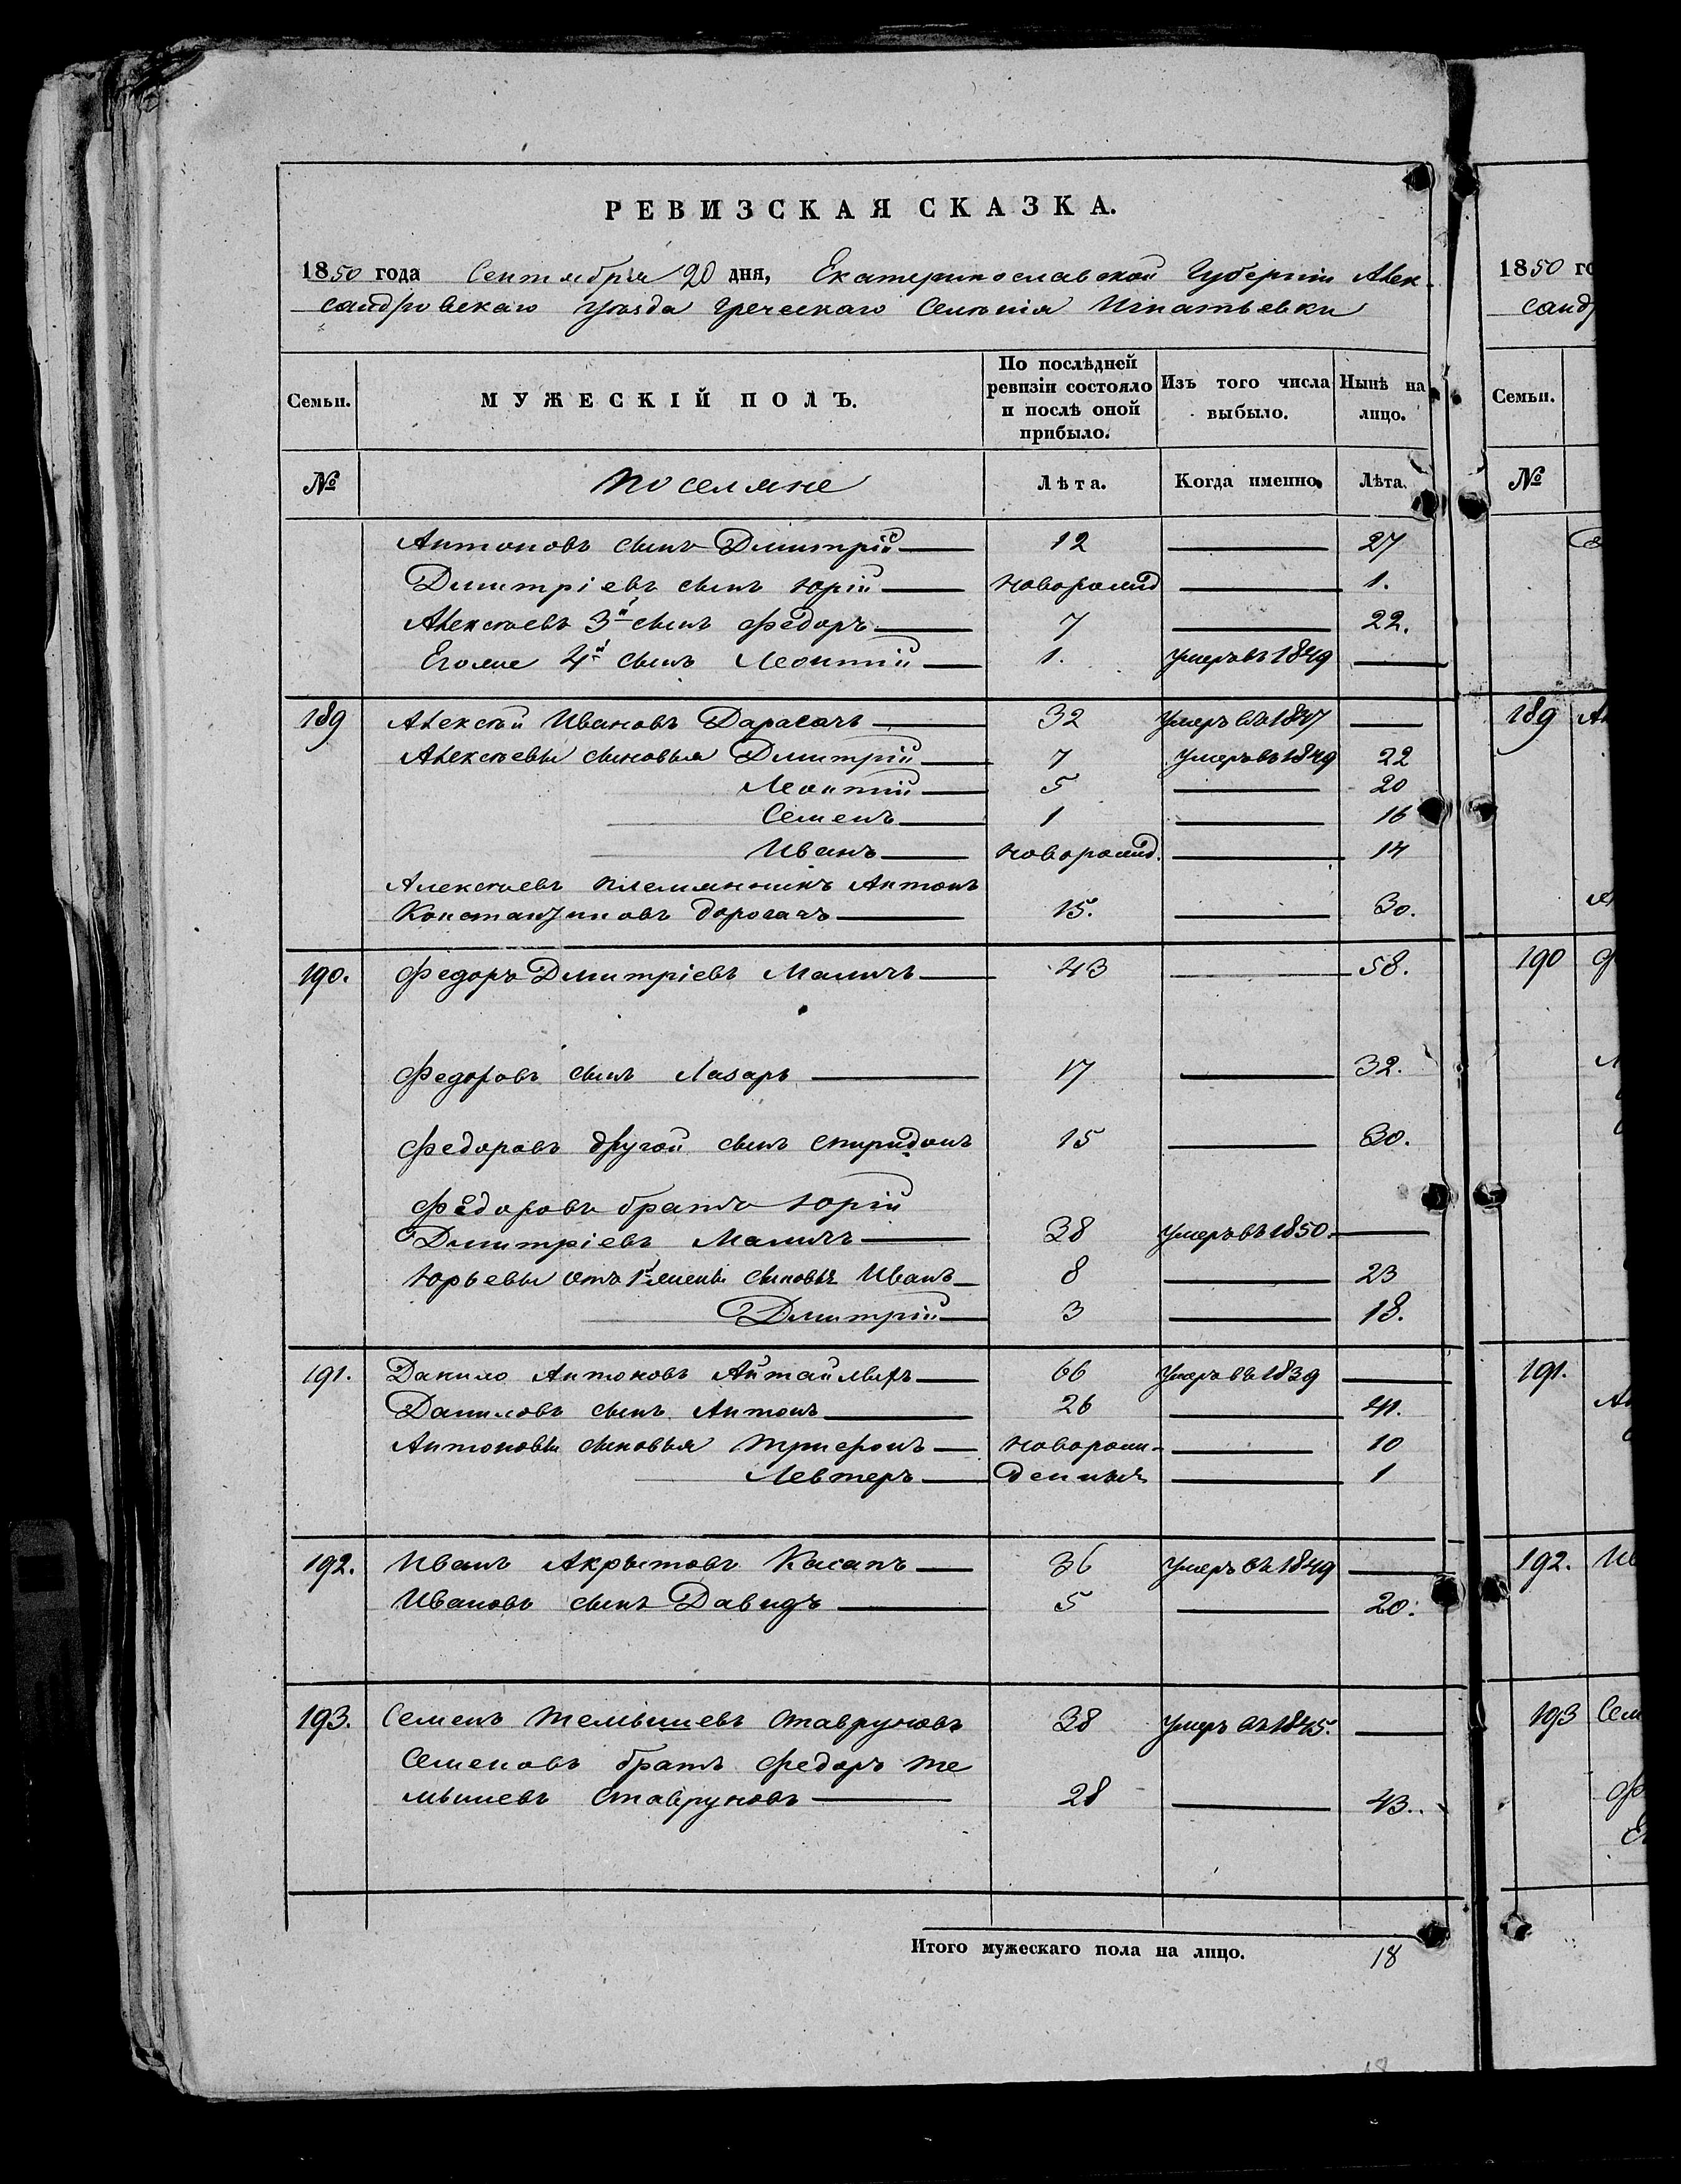 РЕВИЗСКАЯ СКАЗКА.
1850 года Сентября 20 дня, Екатеринославской Губерніи Алек-
сандровскаго уѣзда Греческаго Селенія Игнатьевки
Семьи. МУЖЕСКІЙ ПОЛЪ. По послѣдней ревизіи состояло и послѣ оной прибыло. Изъ того числа выбыло. Нынѣ на лицо.
№ Поселяне Лѣта. Когда именно. Лѣта.
Антоновъ сынъ Дмитрій 12 27
Дмитріевъ сынъ Юрій новорожд 1.
Алексѣевъ 3й сынъ Федоръ 7 22.
Егоже 4й сынъ Леонтій 1. умеръ въ 1849
189 Алексѣй Ивановъ Дарагачъ 32 умеръ въ 1847
Алексѣевы сыновья Дмитрій 7 умеръ въ 1849 22
Леонтій 5 20
Семенъ 1 16
Иванъ новорожд. 14
Алексѣевъ племянникъ Антонъ
Константиновъ Дорогачъ 15. 30.
190. Федоръ Дмитріевъ Маличъ 43 58.
Федоровъ сынъ Лазарь 17 32.
Федоровъ другой сынъ Спиридонъ 15 30.
Федоровъ братъ Юрій
Дмитріевъ Маличъ 38 умеръ въ 1850.
Юрьевы отъ 1й жены сыновья Иванъ 8 23
Дмитрій 3 18.
191. Данило Антоновъ Айтаймыръ 66 умеръ въ 1839
Даниловъ сынъ Антонъ 26 41.
Антоновы сыновья Трифонъ новорож- 10
Левтеръ денныя 1
192. Иванъ Акрытовъ Касапъ 36 умеръ въ 1849
Ивановъ сынъ Давидъ 5 20.
193. Семенъ Темышевъ Ставруновъ 38 умеръ въ 1845.
Семеновъ братъ Федоръ Те
мышевъ Ставруновъ 28 43.
Итого мужескаго пола на лицо. 18
1850 го
санд
Семьи.
№
189
190
191.
192. Ив
193 Сем